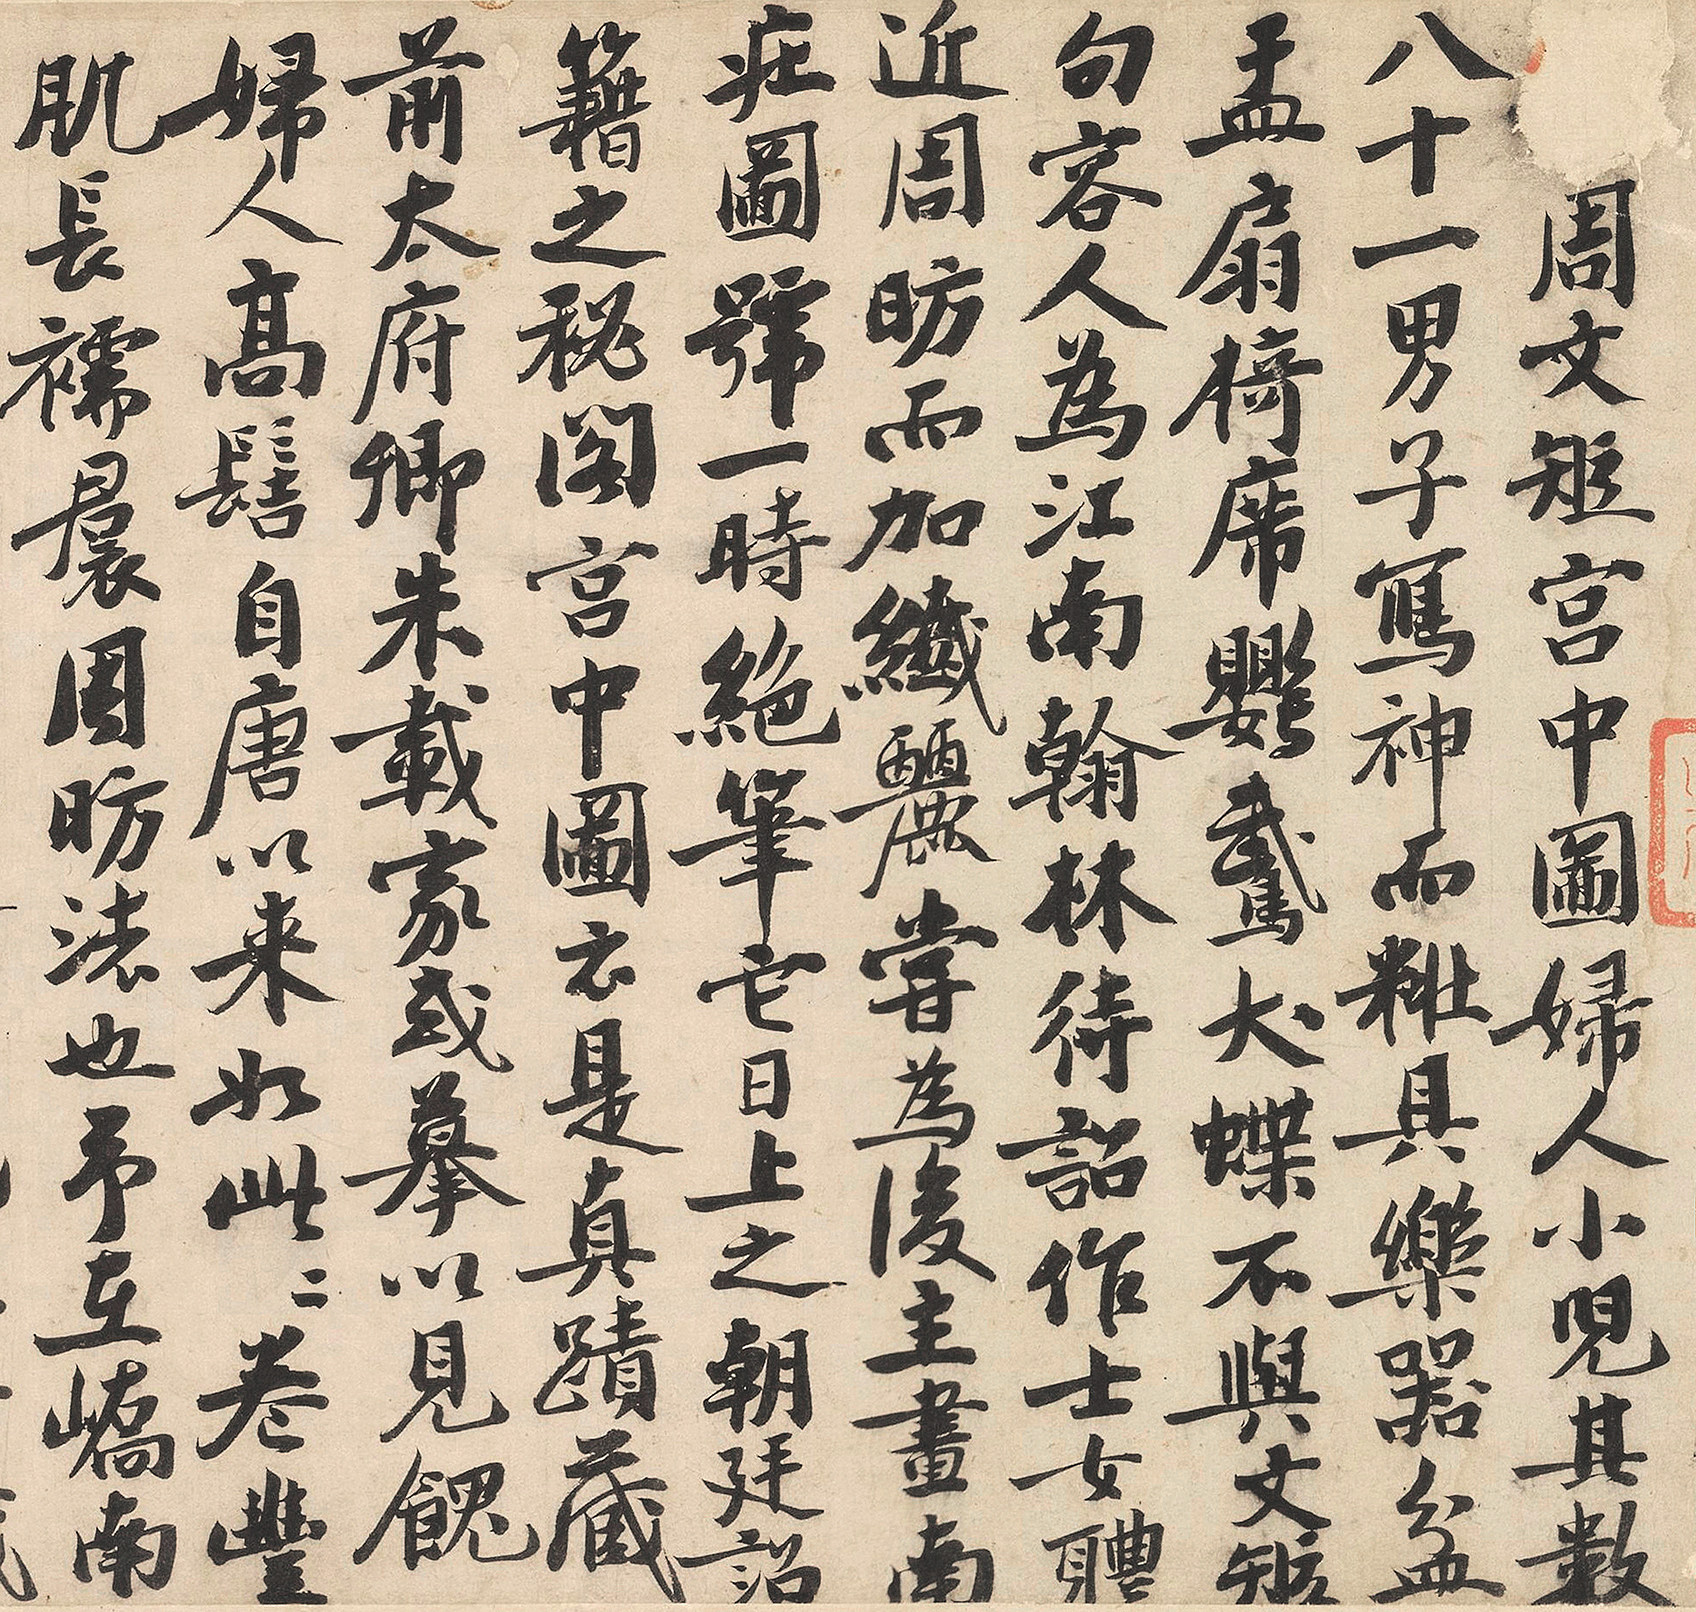 周文矩宮中圖婦人小兒其數
八十一男子寫神而粧具樂器盆
盂扇椅席鸚鵡犬蝶不與文矩
句容人為江南翰林待詔作士女體
近周昉而加纖麗嘗為後主畫南
莊圖號一時絕筆它日上之朝廷詔
籍之秘閣宮中圖云是真蹟藏
前太府卿朱載家或摹以見餽
婦人高髻自唐以来如此此卷豐
肌長襦裠周昉法也予在嶠南